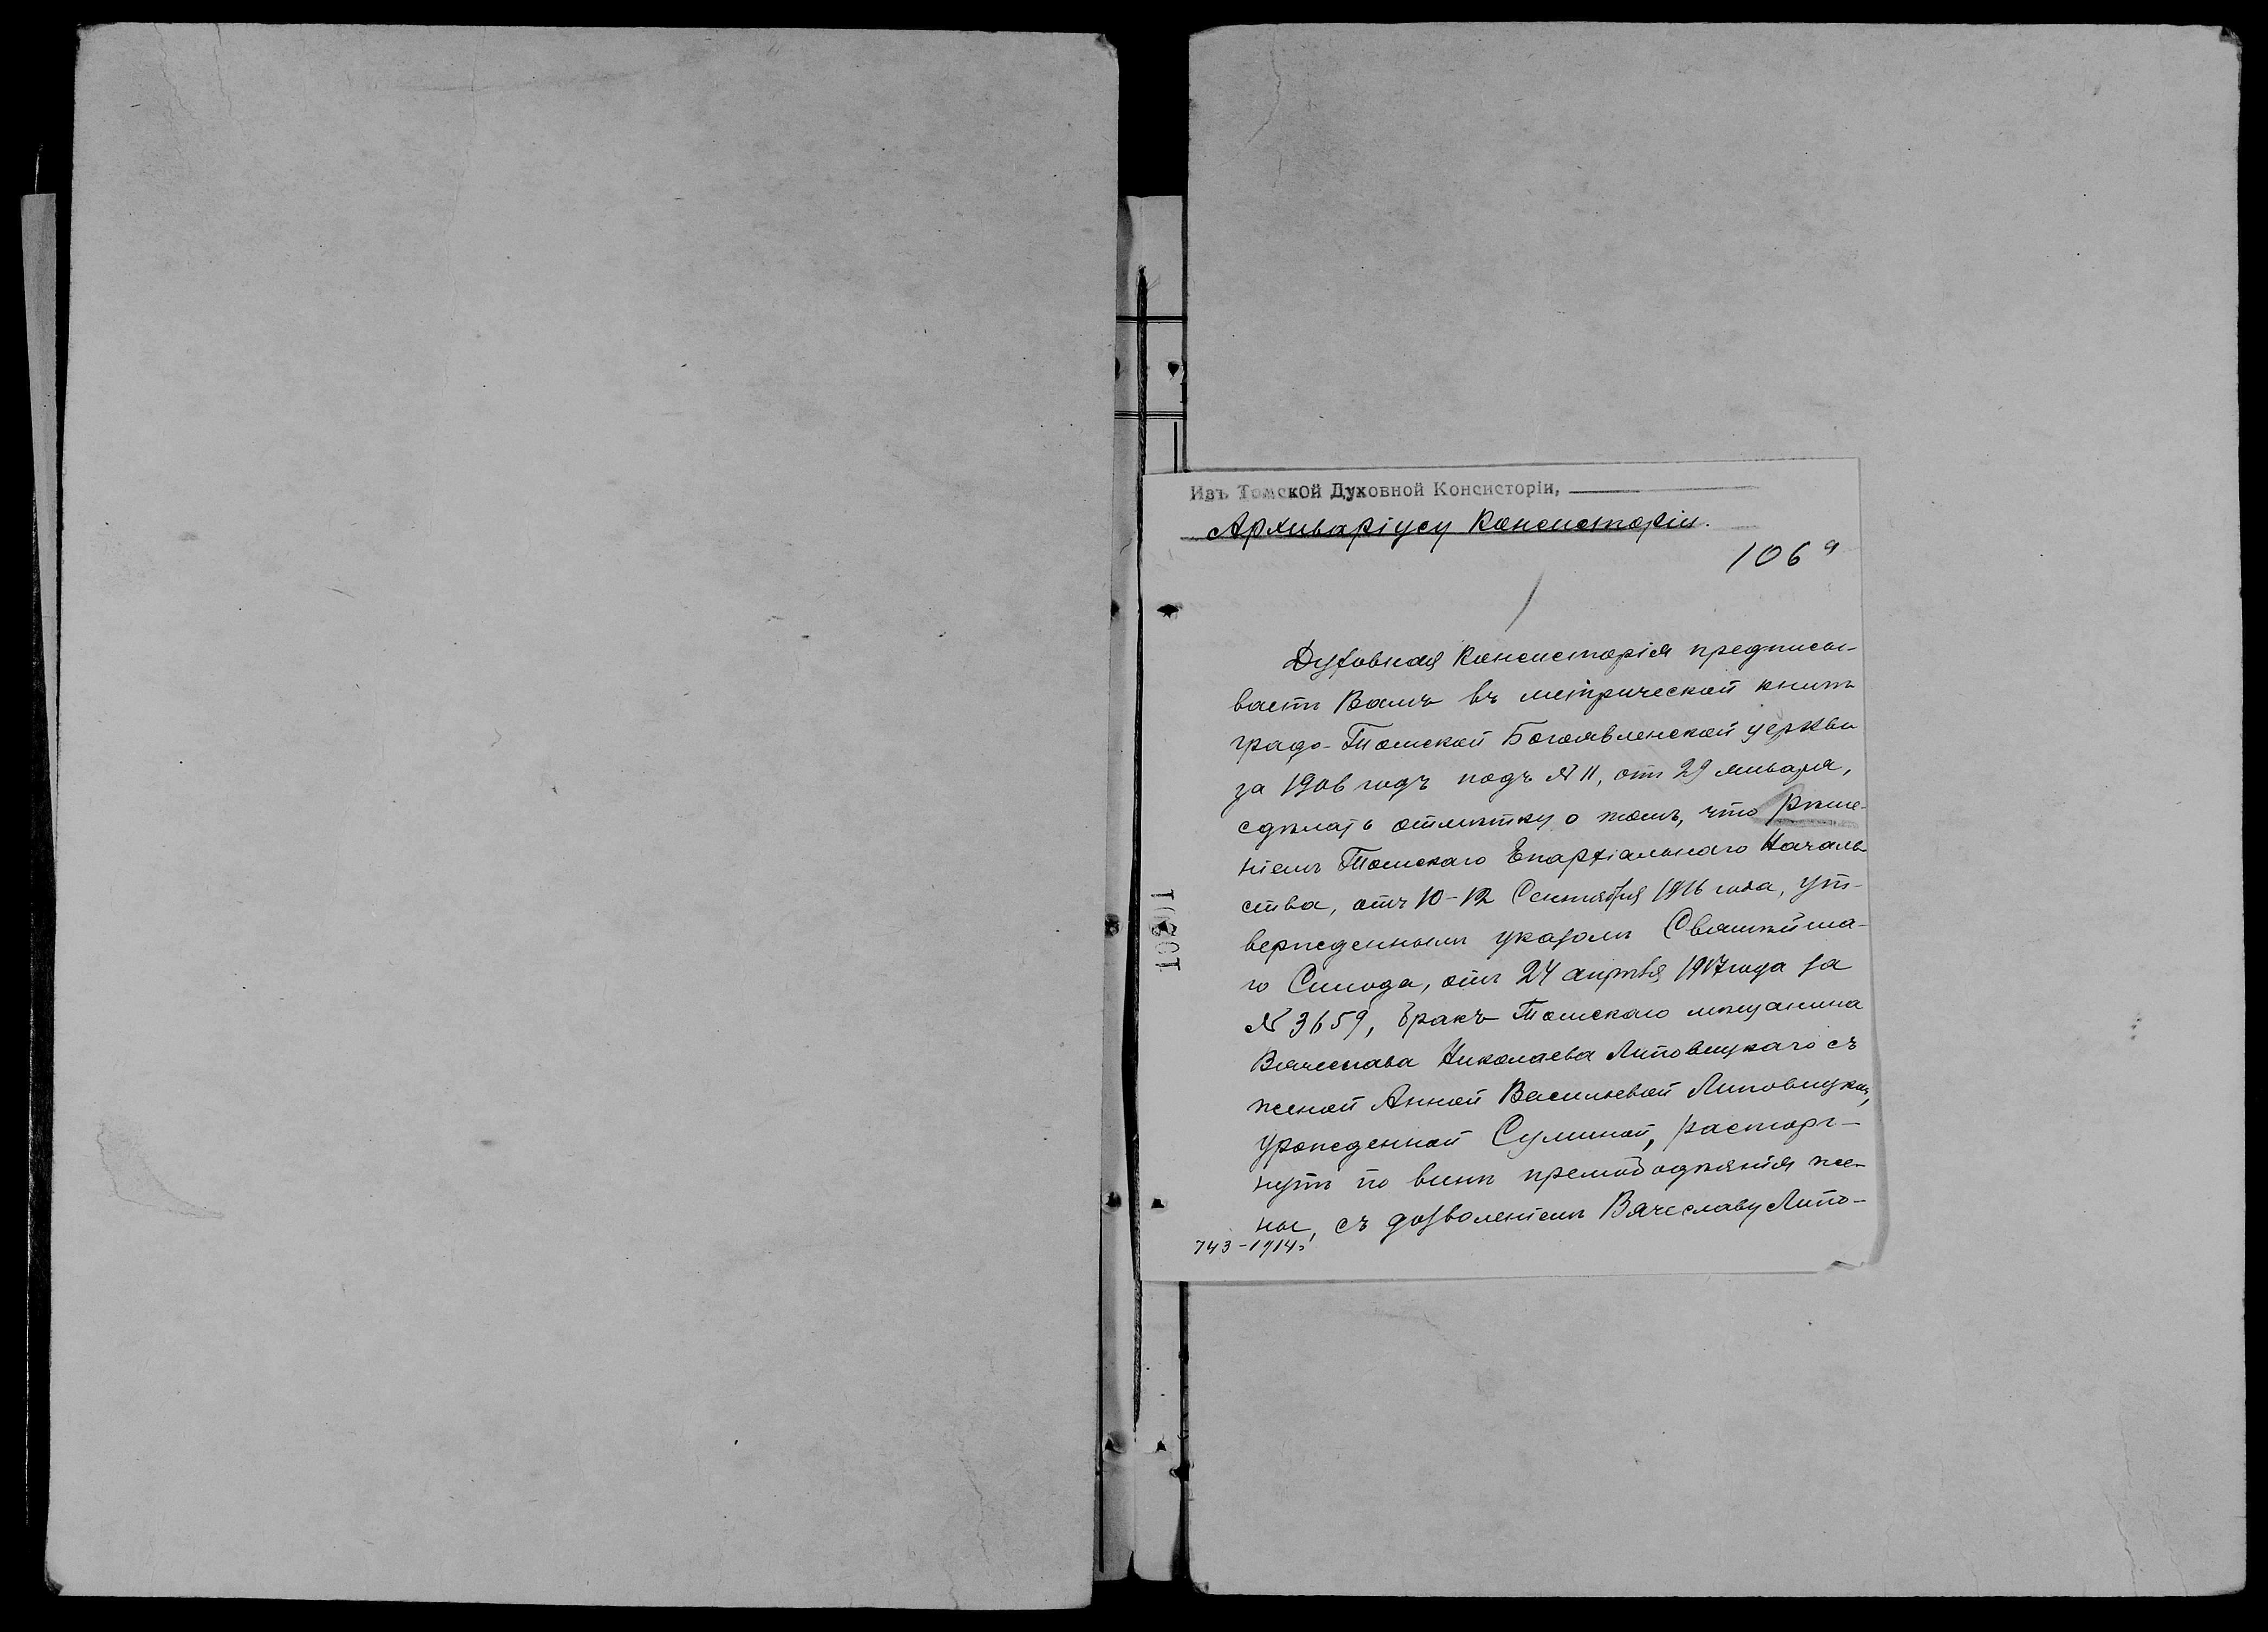 Изъ Томской Духовной Консисторіи,
Архиваріусу Консисторіи.
106 а
Духовная Консисторія предписы-
ваетъ Вамъ въ метрической книгѣ
градо-Томской Богоявленской церкви
за 1906 годъ подъ № 11, отъ 29 января,
сдѣлать отмѣтку о томъ, что рѣше-
ніемъ Томскаго Епархіальнаго Началь-
ства, отъ 10-12 Сентября 1916 года, ут-
вержденнымъ указомъ Святѣйша-
го Синода, отъ 24 апрѣля 1917 года за
№ 3659, бракъ Томскаго мѣщанина
Вячеслава Николаева Липовицкаго съ
женой Анной Васильевой Липовицкой,
урожденной Сулиной, расторг-
нутъ по винѣ прелюбодѣянія же-
ны, съ дозволеніемъ Вячеславу Липо-
743-1914г.